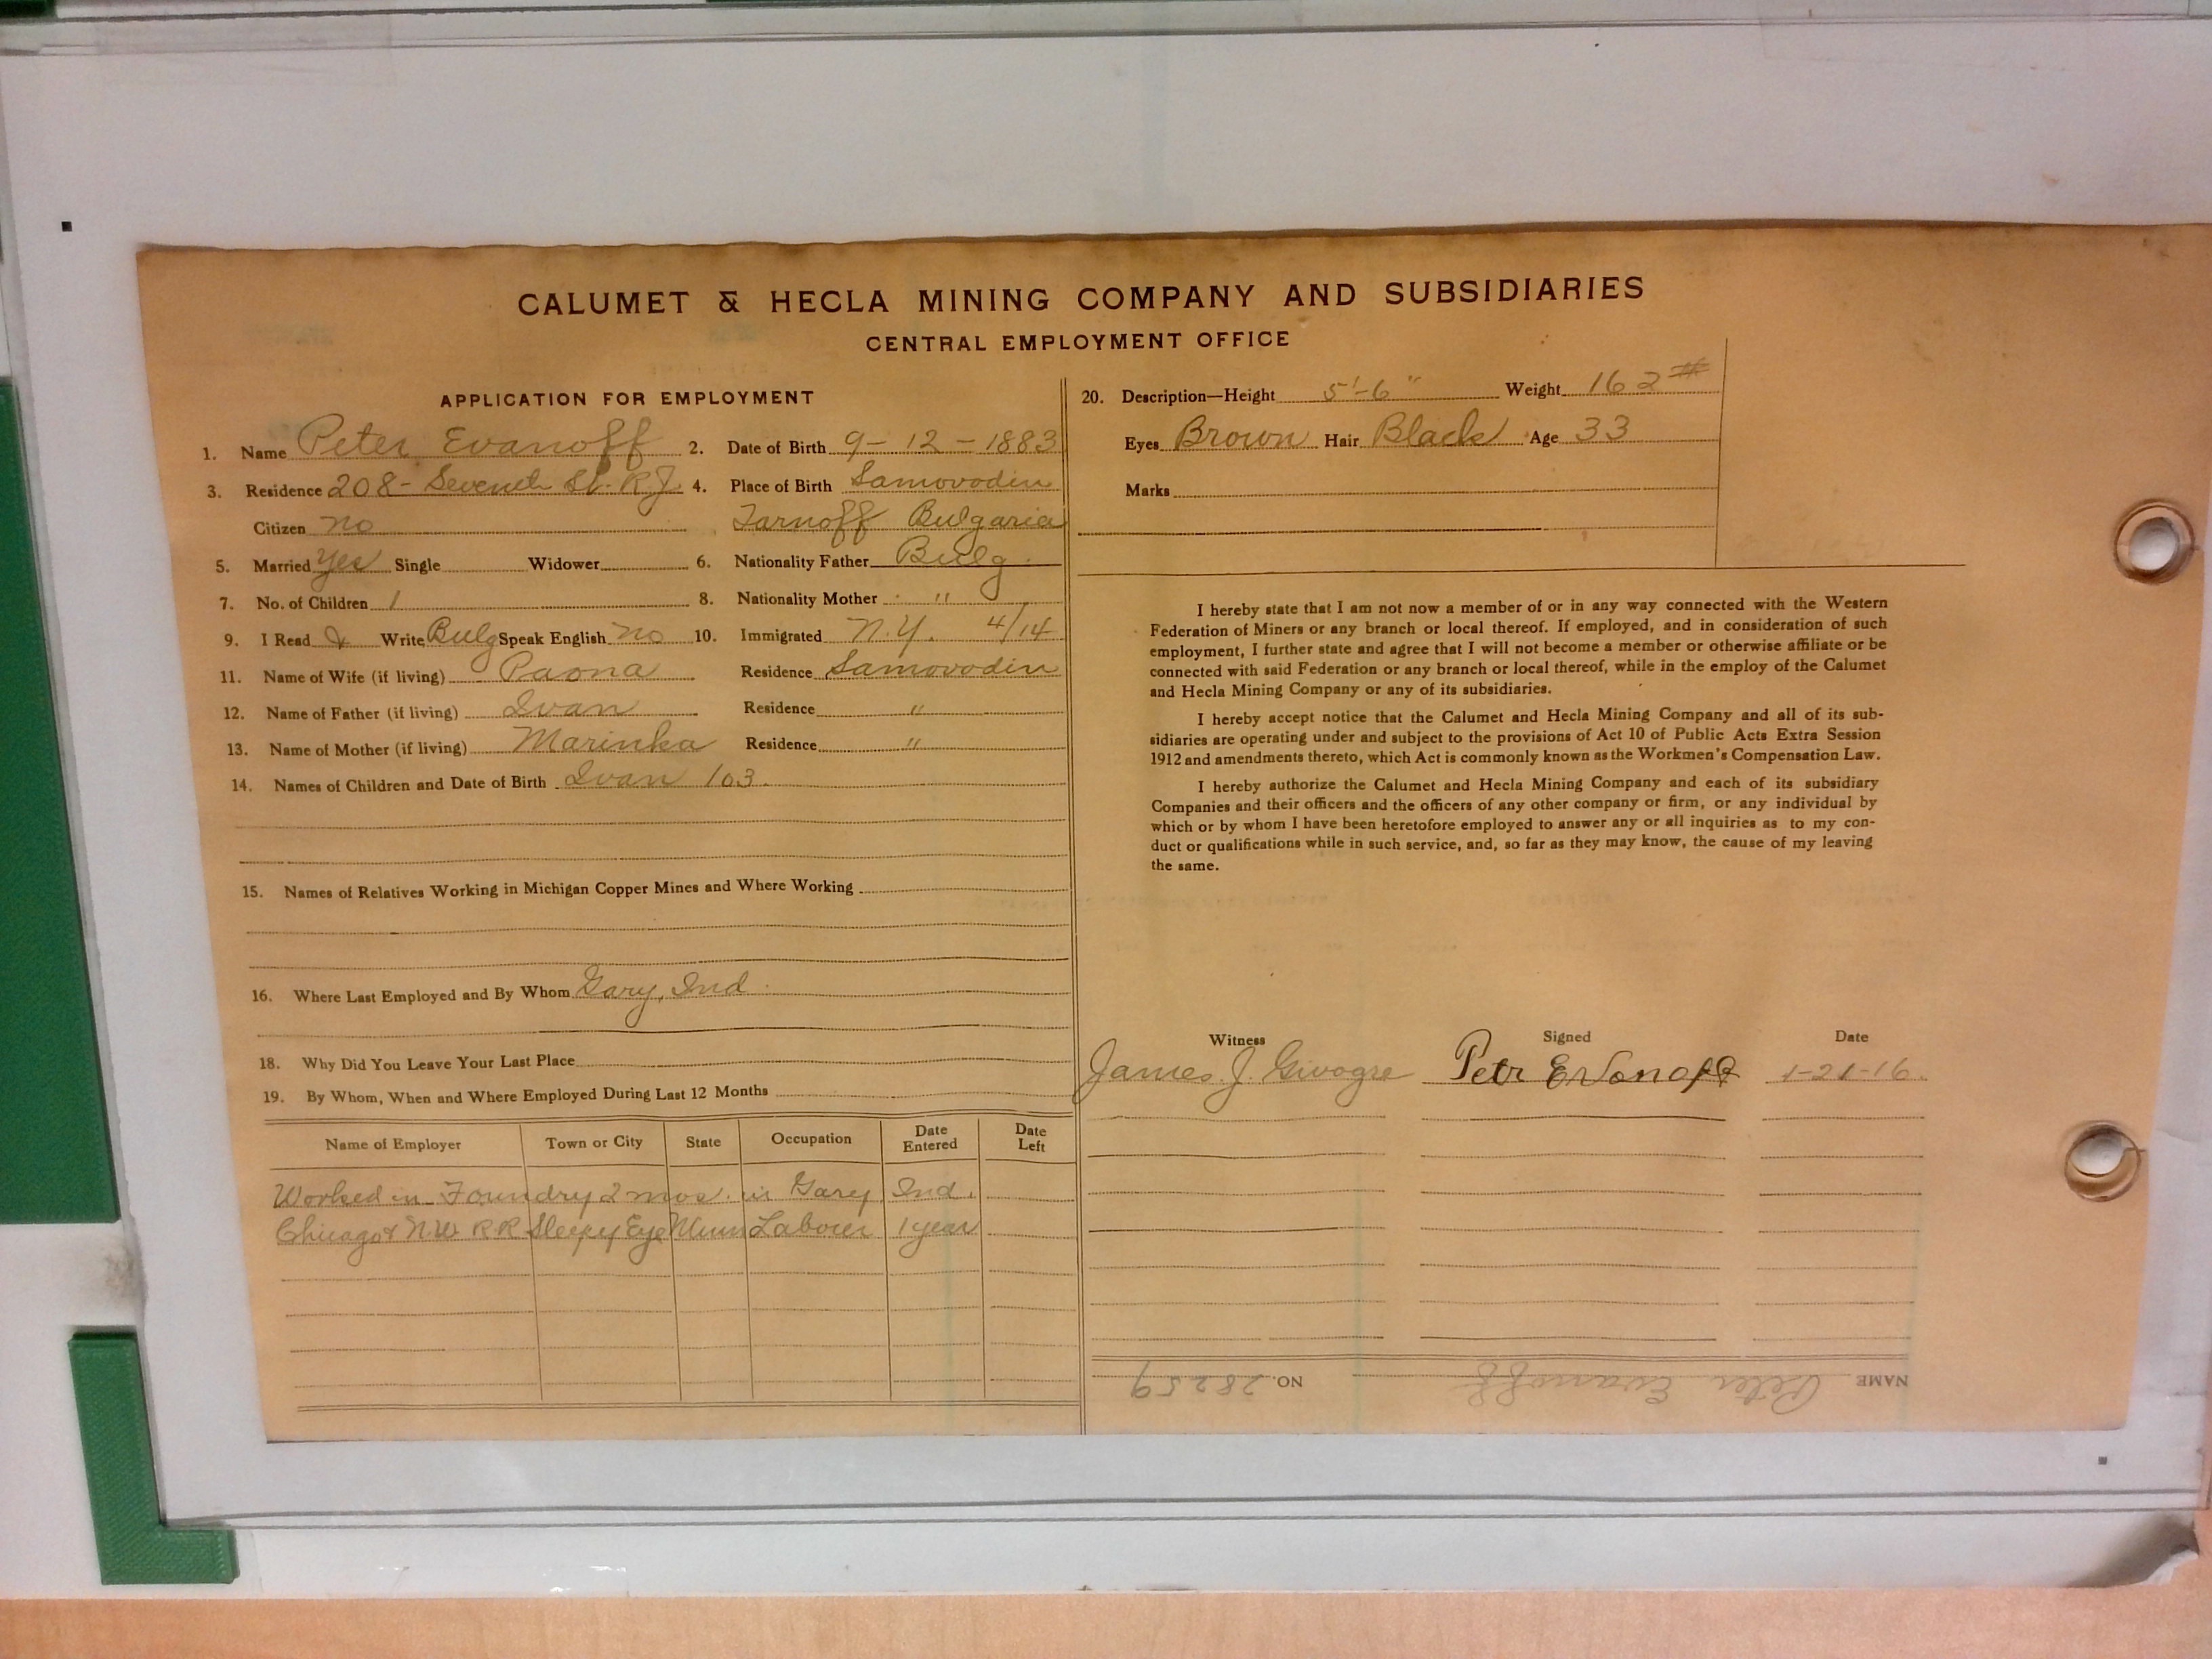 CALUMET & HECLA MINING COMPANY AND SUBSIDIARIES
CENTRAL EMPLOYMENT OFFICE
APPLICATION FOR EMPLOYMENT
1. Name Peter Evanoff 2. Date of Birth 9-12-1883
3. Residence 208- Seventh St. R.J. 4. Place of Birth Samovodin
Citizen no Tarnoff Bulgaria
5. Married yes Single Widower 6. Nationality Father Bulg.
7. No. of Children 1 8. Nationality Mother "
9. I Read & Write Bulg Speak English no 10. Immigrated N.Y. 4/14
11. Name of Wife (if living) Raona Residence Samovodin
12. Name of Father (if living) Ivan Residence "
13. Name of Mother (if living) Marinka Residence "
14. Names of Children and Date of Birth Ivan 103.
15. Names of Relatives Working in Michigan Copper Mines and Where Working
16. Where Last Employed and By Whom Gary, Ind.
18. Why Did You Leave Your Last Place
19. By Whom, When and Where Employed During Last 12 Months
Name of Employer Town or City State Occupation Date Entered Date Left
Worked in Foundry 2 mos. in Gary Ind.
Chicago & N.W. RR Sleepy Eye Minn Laborer 1 year
20. Description—Height 5'-6" Weight 162#
Eyes Brown Hair Black Age 33
Marks
I hereby state that I am not now a member of or in any way connected with the Western
Federation of Miners or any branch or local thereof. If employed, and in consideration of such
employment, I further state and agree that I will not become a member or otherwise affiliate or be
connected with said Federation or any branch or local thereof, while in the employ of the Calumet
and Hecla Mining Company or any of its subsidiaries.
I hereby accept notice that the Calumet and Hecla Mining Company and all of its sub-
sidiaries are operating under and subject to the provisions of Act 10 of Public Acts Extra Session
1912 and amendments thereto, which Act is commonly known as the Workmen's Compensation Law.
I hereby authorize the Calumet and Hecla Mining Company and each of its subsidiary
Companies and their officers and the officers of any other company or firm, or any individual by
which or by whom I have been heretofore employed to answer any or all inquiries as to my con-
duct or qualifications while in such service, and, so far as they may know, the cause of my leaving
the same.
Witness Signed Date
James J. Petr 1-21-16.
NAME Peter Evanoff NO. 28259